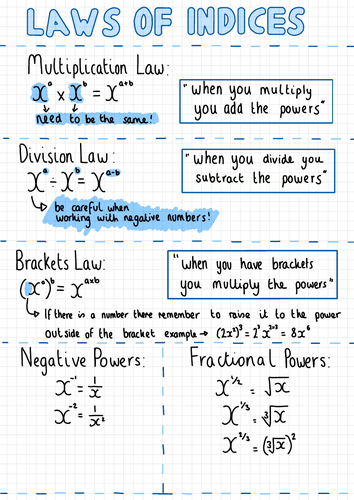 LAWS OF INDICES
Multiplication Law:
xᵃ × xᵇ = xᵃ⁺ᵇ
need to be the same!
"when you multiply
you add the powers"
Division Law:
xᵃ ÷ xᵇ = xᵃ⁻ᵇ
be careful when
working with negative numbers!
"when you divide you
subtract the powers"
Brackets Law:
(xᵃ)ᵇ = xᵃˣᵇ
"when you have brackets
you multiply the powers"
If there is a number there remember to raise it to the power
outside of the bracket example → (2x²)³ = 2³x²ˣ³ = 8x⁶
Negative Powers:
x⁻¹ = 1/x
x⁻² = 1/x²
Fractional Powers:
x^1/2 = √x
x^1/3 = ∛x
x^2/3 = (∛x)²